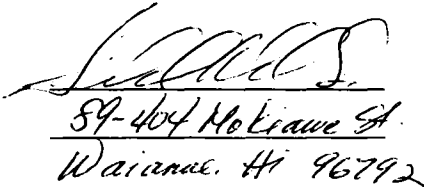 89-404 Mokiawe St.
Waianae. Hi 96792